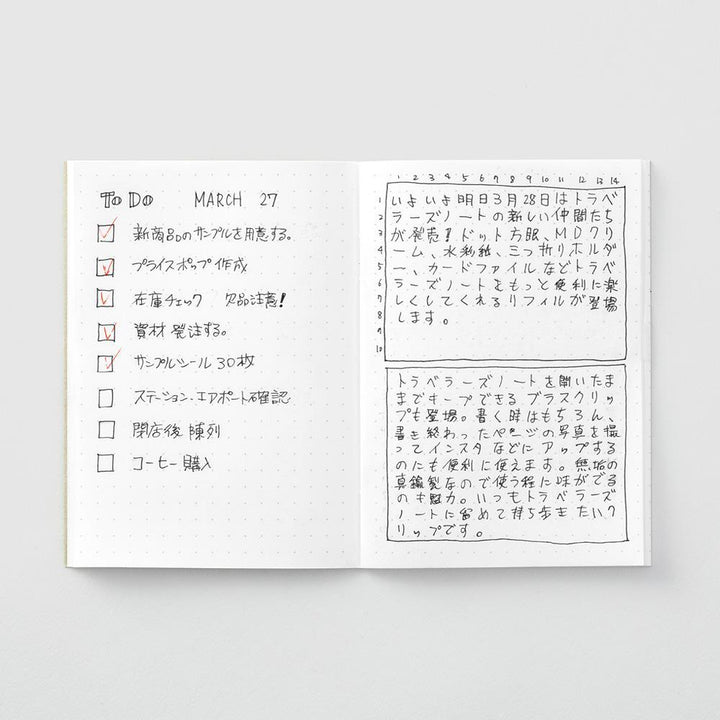 To Do MARCH 27
新商品のサンプルを用意する。
プライスポップ作成
在庫チェック 欠品注意!
資材発注する。
サンプルシール 30枚
ステーション.エアポート確認
閉店後 陳列
コーヒー購入
1 2 3 4 5 6 7 8 9 10 11 12 13 14
1 いよいよ明日3月28日はトラベ
2 ラーズノートの新しい仲間たち
3 が発売!ドット方眼、MDクリ
4 ーム、水彩紙、三つ折りホルダ
5 ー、カードファイルなどトラベ
6 ラーズノートをもっと便利に楽
7 しくしてくれるリフィルが登場
8 します。
9
10
トラベラーズノートを開いたま
までキープできるブラスクリッ
プも登場。書く時はもちろん、
書き終わったページの写真を撮
ってインスタなどにアップする
のにも便利に使えます。無垢の
真鍮製なので使う程に味がでる
のも魅力。いつもトラベラーズ
ノートに留めて持ち歩きたいク
リップです。